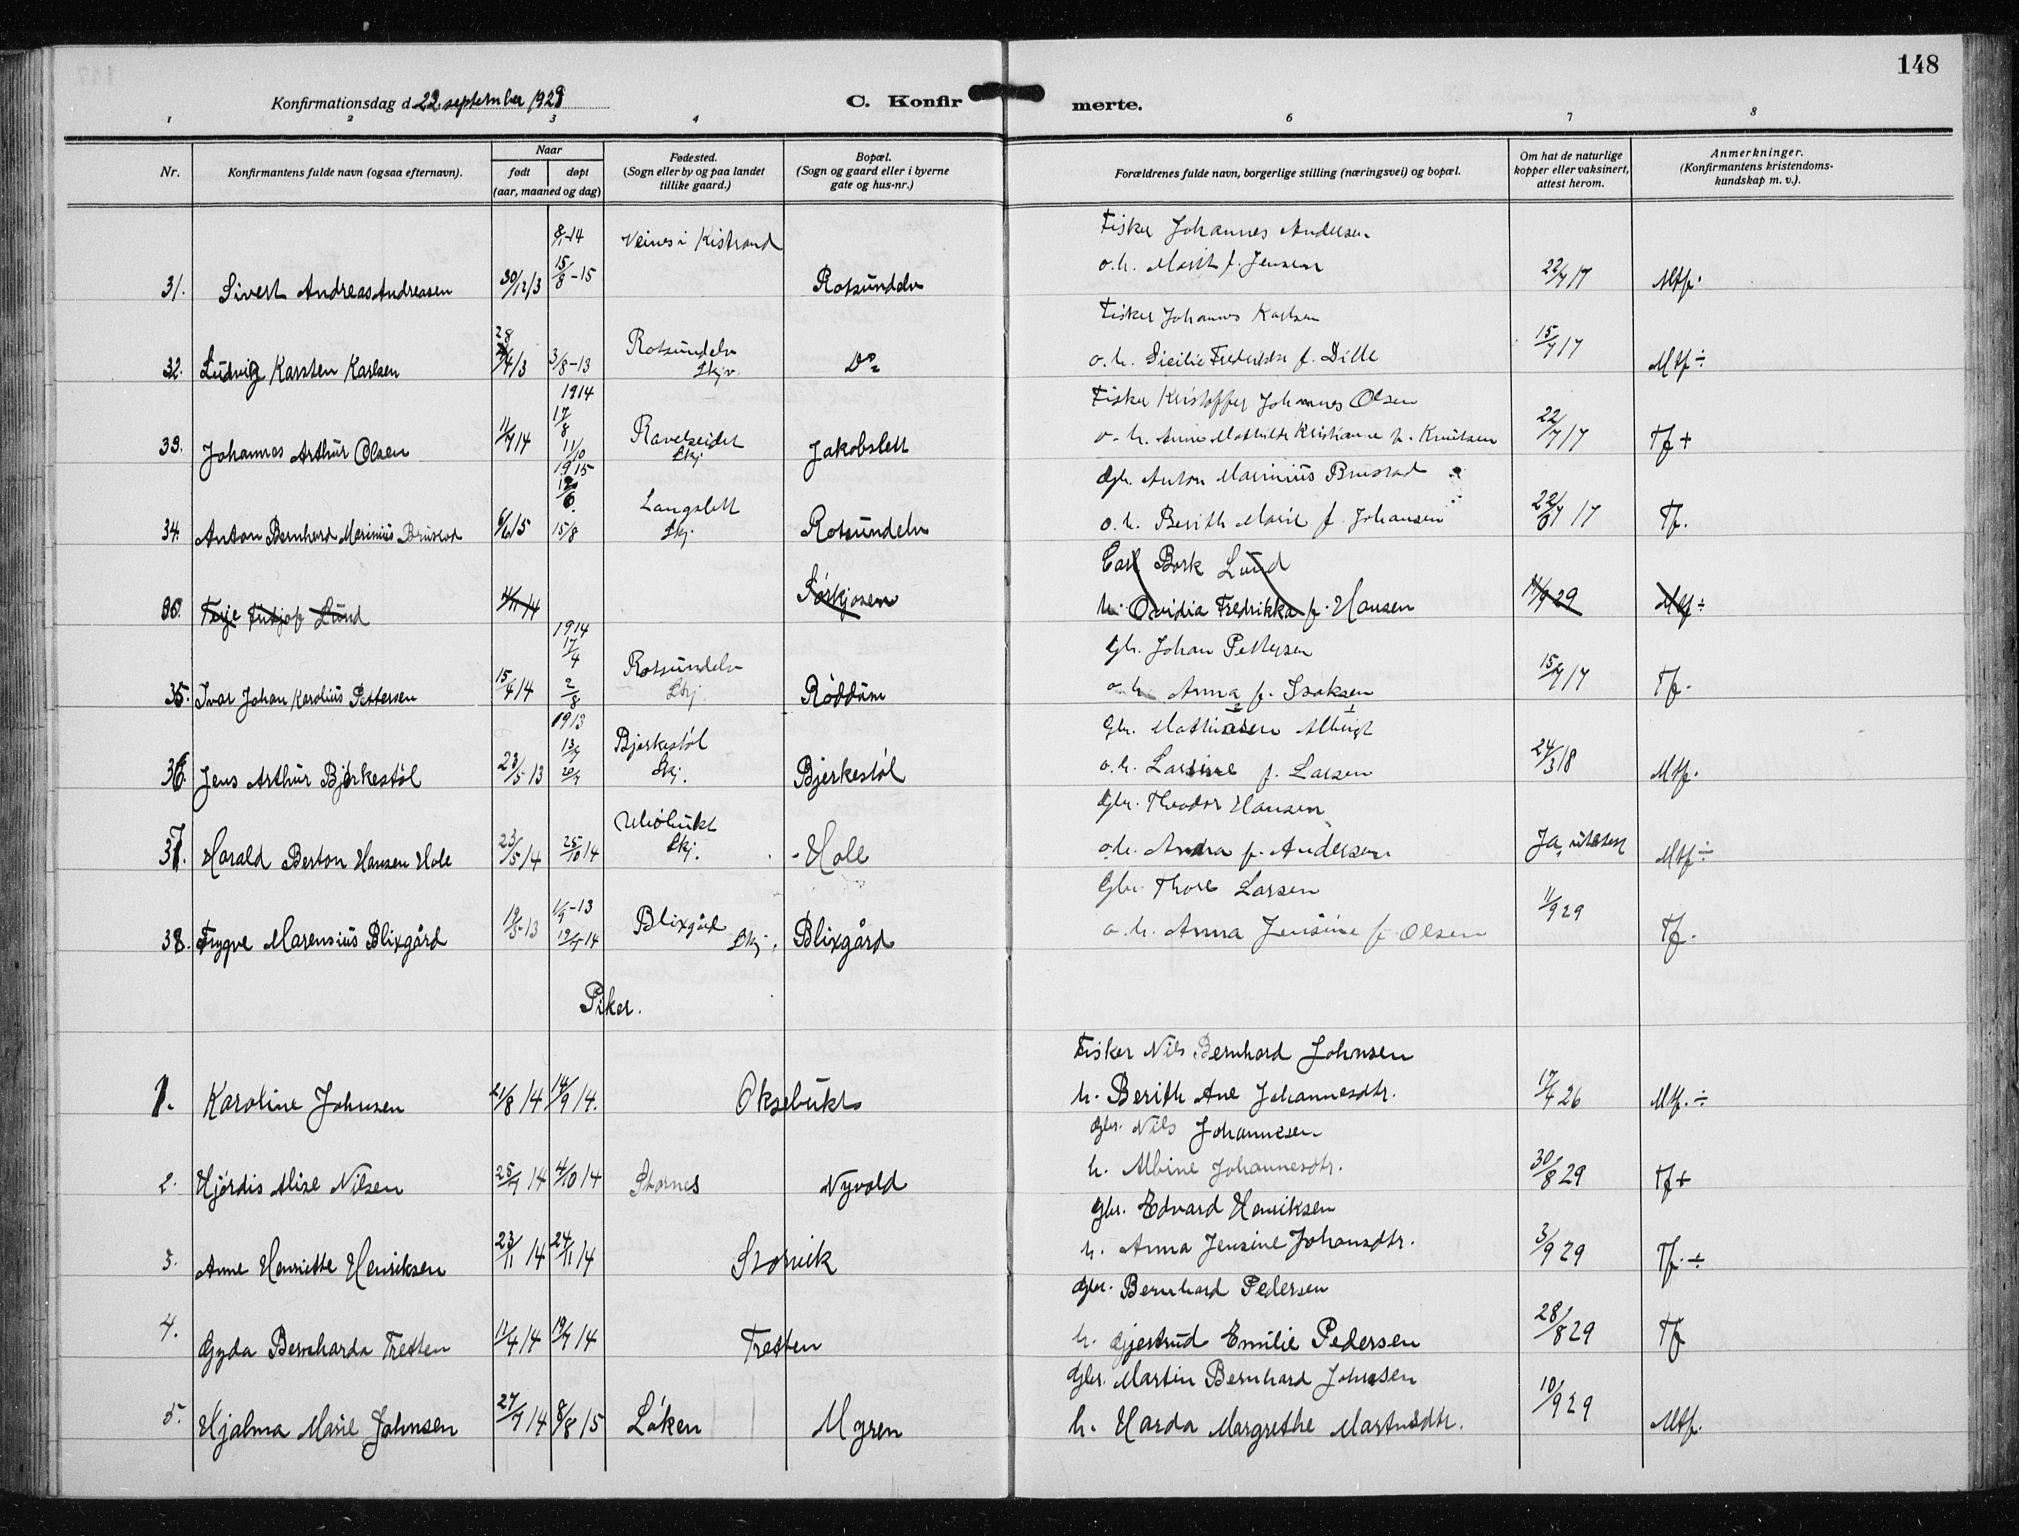 148
Konfirmationsdag d. 22. september 1929
C. Konfirmerte.
1 2 3 4 6 7 8
Nr.
Konfirmantens fulde navn (ogsaa efternavn).
Naar
født døpt
(aar, maaned og dag)
Fødested.
(Sogn eller by og paa landet
tillike gaard.)
Bopæl.
(Sogn og gaard eller i byerne
gate og hus-nr.)
Forældrenes fulde navn, borgerlige stilling (næringsvei) og bopæl.
Om hat de naturlige
kopper eller vaksinert,
attest herom.
Anmerkninger.
(Konfirmantens kristendoms-
kundskap m. v.).
8/1-14 Veines i Kistrand Fisker Johannes Andersen
15/8-15 o.h. Marit f. Jensen
31. Sivert Andreas Andreasen 30/12/3 Rotsundelv 22/7 17 Mtf.
Fisker Johannes Karlsen
28 Rotsundelv 15/7 17
32. Ludvig Karsten Karlsen 4/3 3/8-13 Skjv. Do o. h. f. Dille Mtf ÷
1914 Fisker Kristoffer Johannes Olsen
17/8
33. Johannes Arthur Olsen 11/7 14 11/10 Ravelseidet Skj. Jakobslett o. h. Anne Mathilde Kristianne f. Knutsen 22/7 17 Tf +
1915 Gbr. Anton Marinius Brustad
Langslett
34. Anton Bernhard Marinius Brustad 6/6 15 15/8 Skj. Rotsundelv o. h. Berith Marie f. Johansen 22/7 17 Tf.
Carl Bork Lund
35. Lund 4/11 14 Sørkjosen h. Ovidia Fredrikka f. Hansen 11/9 29 Mtf ÷
1914 17/4 Gbr. Johan Pettersen
35. Ivar Johan Karolius Pettersen 15/4 14 2/8 Rotsundelv Skj. Røddum o. h. Anna f. Isaksen 15/7 17 Tf.
1913 Gbr. Mathiasen Albrigt
36. Jens Arthur Bjerkestøl 23/5 13 Bjerkestøl Skj. Bjerkestøl o. h. f. Larsen 24/3 18 Mtf.
Gbr. Theodor Hansen
37. Harald Berton Hansen Hole 23/5 14 25/10 14 Uløbukt Skj. Hole o.h. Andrea f. Andersen Ja, Mtf ÷
Gbr. Thore Larsen
38. Trygve Marensius Blixgård 19/5-13 1/9-13 14 Blixgård Skj. Blixgård o. h. Anna Jensine f. Olsen 11/9 29 Tf.
Piker.
Fisker Nils Bernhard Johnsen
1. Karoline Johnsen 21/8 14 14/9 14. Oksebukt h. Berith Ane Johannesdtr. 17/7 26 Mtf. ÷
Gbr. Nils Johannesen
2. Hjørdis Alise Nilsen 25/7 14 4/10 14 Stornes Nyvold h. Albine Johannesdtr. 30/8 29 Tf +
Gbr. Edvard Henriksen
3. Anne Henriette Henriksen 23/11 14 24/11 14 Storvik h. Anna Jensine Johansdtr. 3/9 29 Tf. ÷
Gbr. Bernhard Pedersen
4. Gyda Bernharda Tretten 11/4 14 19/7 14 Tretten h. Gjertrud Emilie Pedersen 28/8 29 Tf
Gbr. Martin Bernhard Johnsen
5. Hjalma Marie Johnsen 27/7 14 8/8 15 Løken Myren h. Harda Margrethe Martinsdtr. 10/9 29 Mtf.